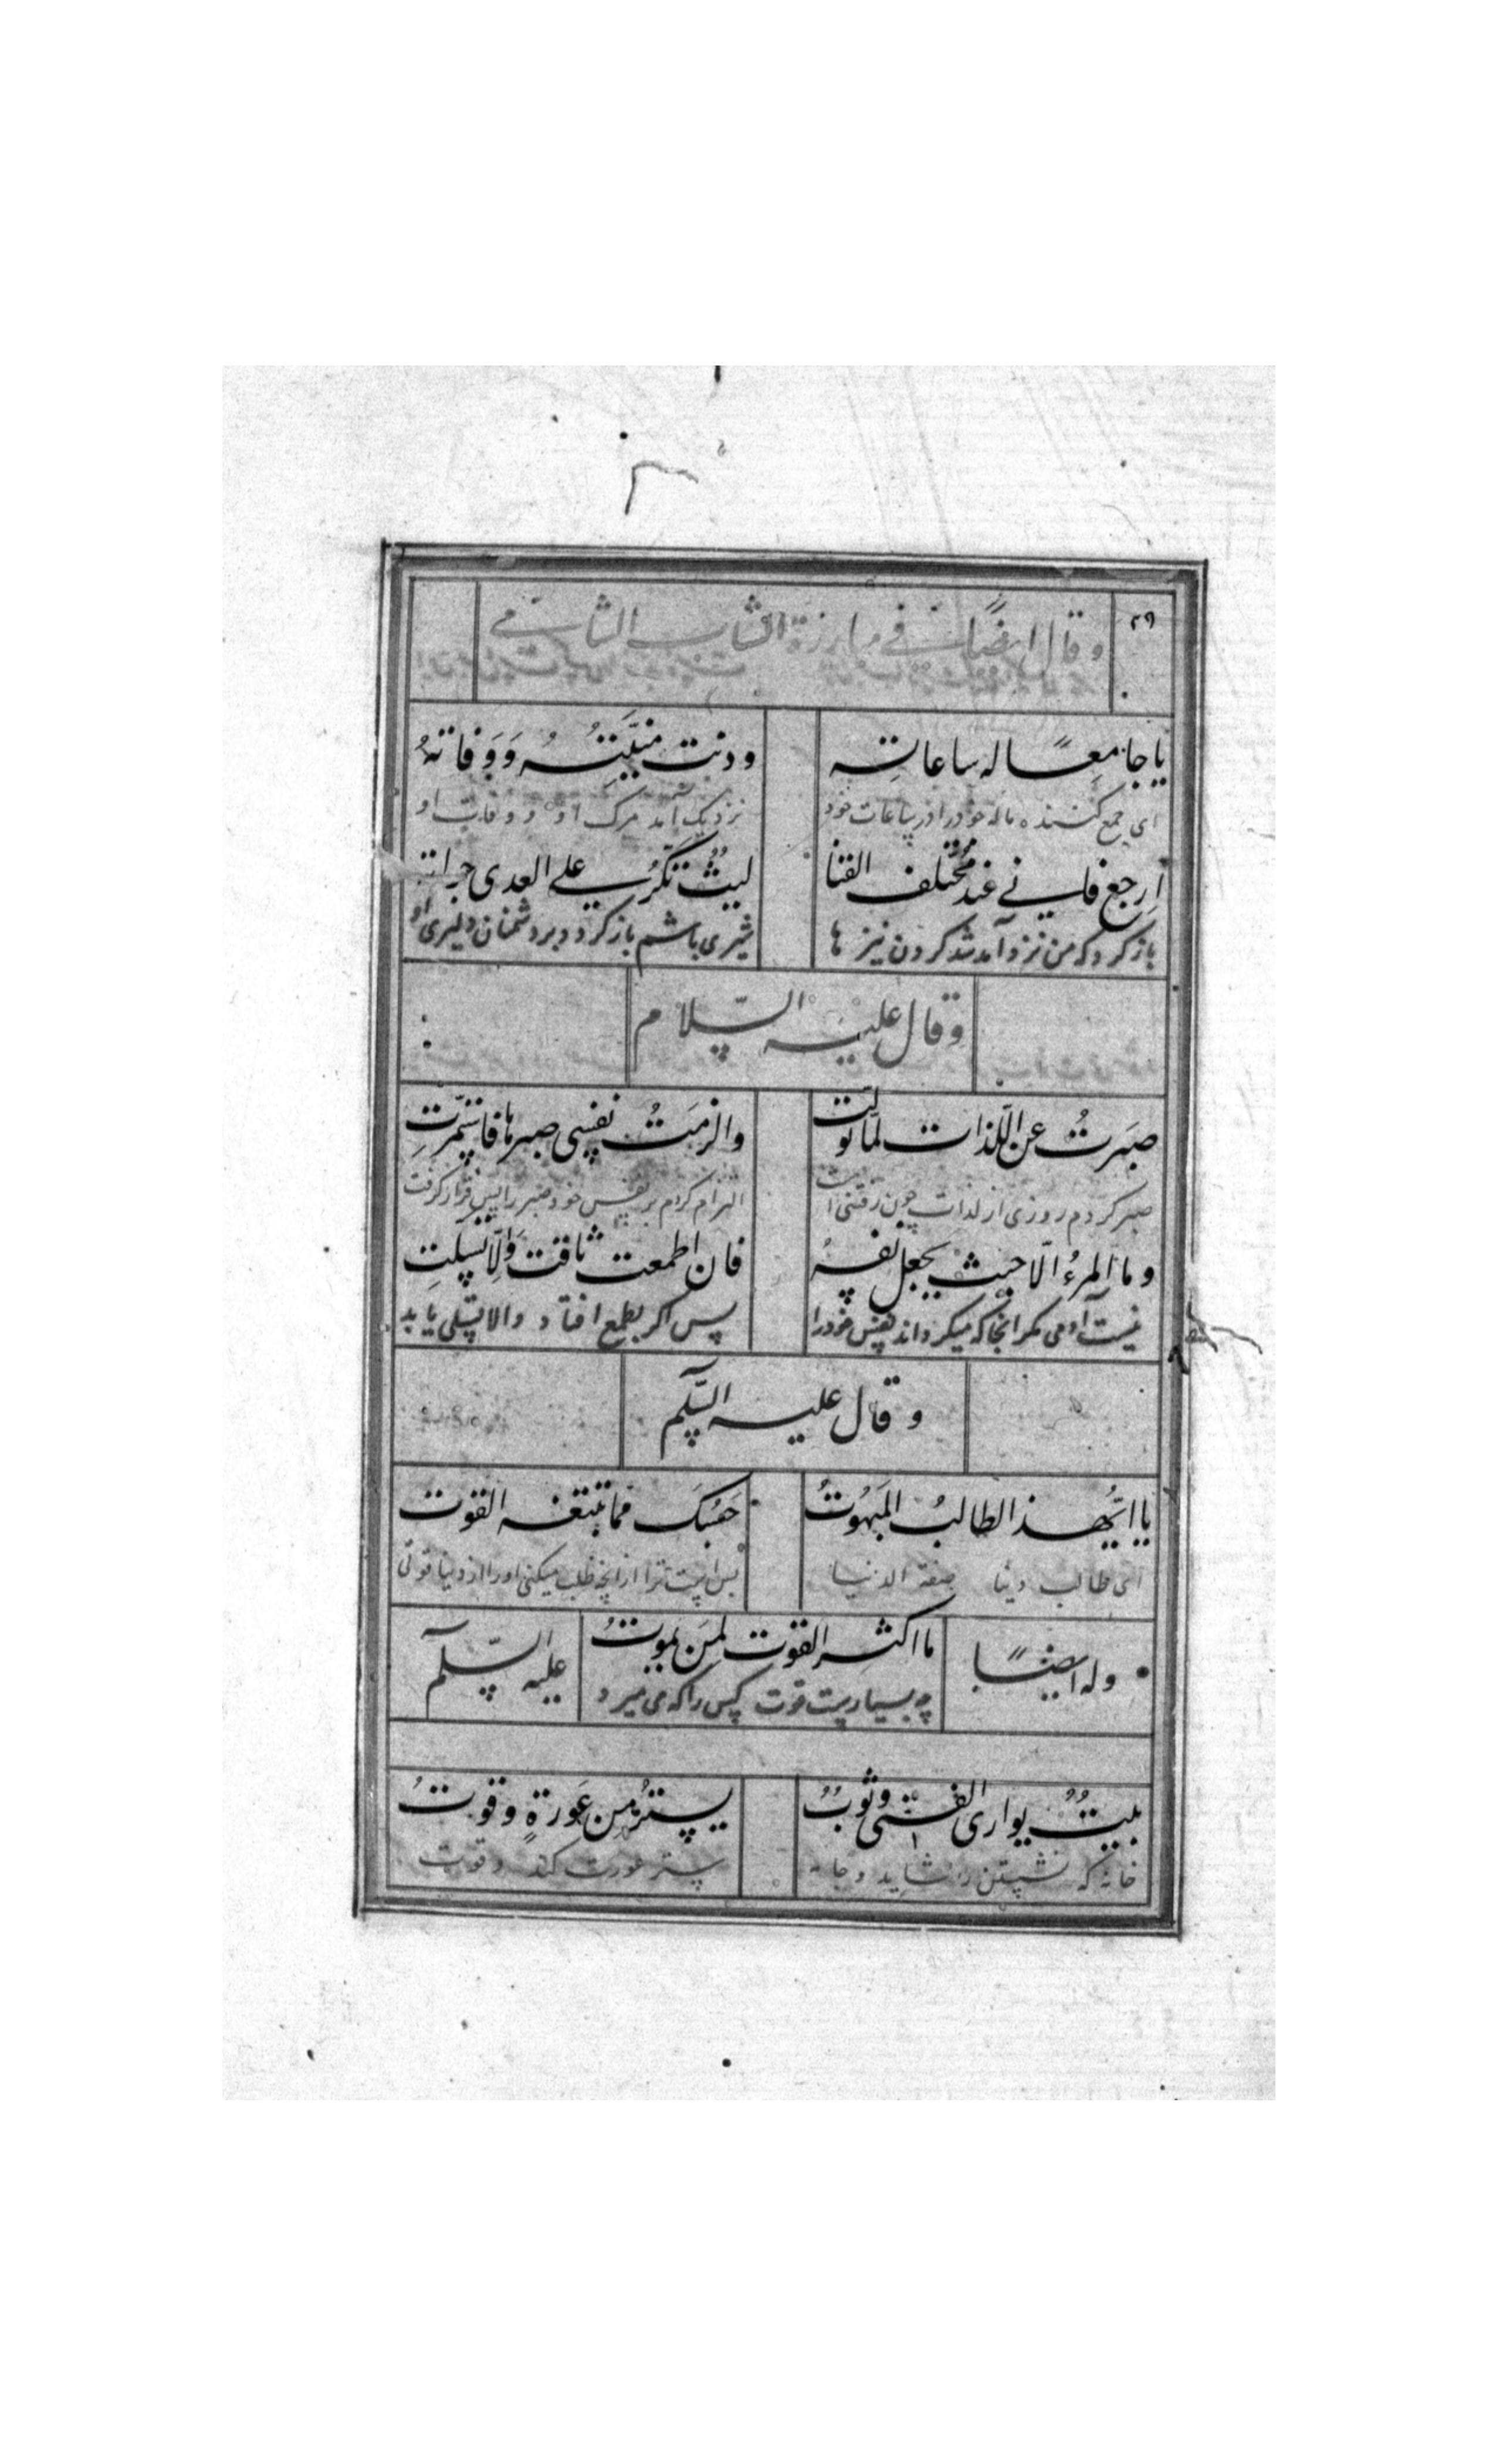 ٢٩
وقال ايضًا في مبارزة الشاب الشامي
يا جامعًا له ساعاتِه ودنت منيّتُهُ وَوَفاتهُ
اي جمع كننده ماله خود را در ساعات خود نزديك آمد مرك او و وفات او
اِرجع فاني عند مُختلف القنا ليثٌ تكرُ على العدى
باز كرد كه من نزد آمد شد كردن نيزها شيرى باشم باز كردد بر دشمنان دليرى او
وقال عليه السّلام
صبَرتُ عن اللّذات لمّا تولّت والزمَتُ نفسي صبرها فاستمّرتِ
صبر كردم روزى از لذات چون التزام كردم بر نفس خود صبر را پس قرار كرفت
وما المرءُ الّا حيث يجعل نفسهُ فان اطمعت تاقت وَالّا تسلتِ
نيست آدمى مكر انجا كه ميكرداند نفس خود را پس اكر بطمع افتاد والا تسلى يابد
وقال عليه السّلم
يا ايُّهذ الطالبُ المَبهُوتُ حَسبُكَ مما تبتغه القوت
اى طالب دنيا صفة الدنيا بس است ترا از انچه طلب ميكنى اورا از دنيا قوتى
وله ايضًا ما اكثر القوت لمِن يموتُ عليه السّلم
چه بسيارست قوت كسى را كه مى ميرد
بليتٌ يوارى الفتى وثوبٌ يسترُ من عَورةٍ وقوتُ
خانه كه نشستن را شايد وجامه ستر عورت كند وقوت